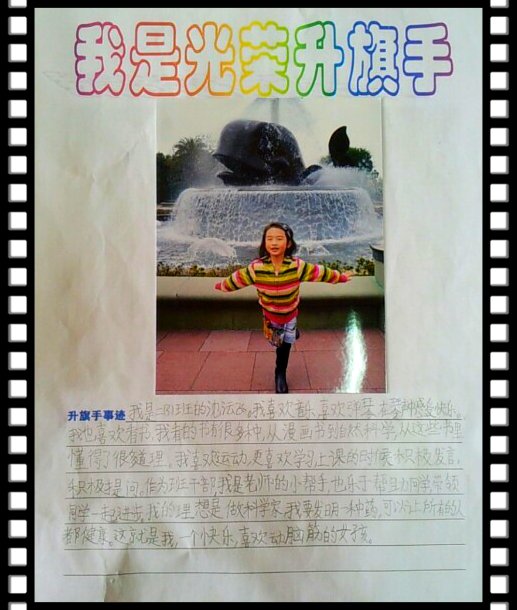 我是光荣升旗手
升旗手事迹 我是二(3)班的。我喜欢音乐,喜欢弹琴,在琴声中感受快乐。
我也喜欢看书,我看的书有很多种,从漫画书到自然科学,从这些书里
懂得了很多道理。我喜欢运动,更喜欢学习,上课的时候积极发言,
积极提问。作为班干部,我是老师的小帮手也乐于帮助同学带领
同学一起进步。我的理想是做科学家,我要发明一种药,可以让所有的人
都健康。这就是我,一个快乐,喜欢动脑筋的女孩。